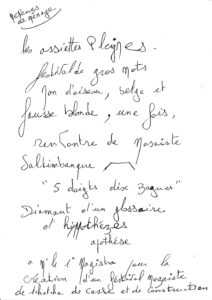 défenses
de ménage
les assiettes Pleines.
festival de gros mots
Non d'oiseau, belge et
fausse blonde, une fois,
rencontre de Mosaiste
Saltimbanque
"5 doigts dix bagues"
Diamant d'un glossaire
d'hypothèzes
apothèse
a M le 1° Magistra pour la
création d'un festival Mozaiste
de théâtre de casse et de construction